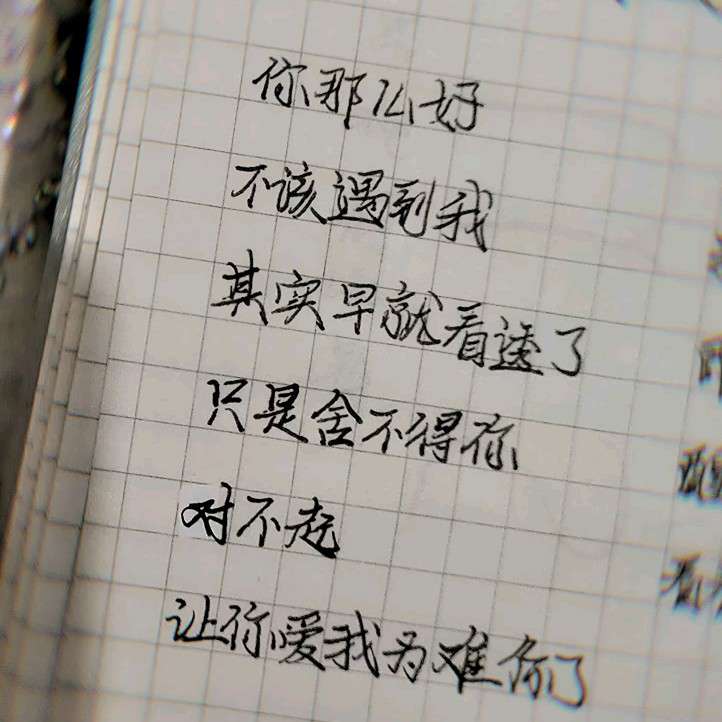 你那么好
不该遇到我
其实早就看透了
只是舍不得你
对不起
让你嗳我为难你了